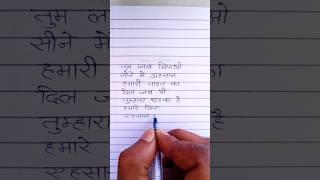 तुम लाख छिपाओ
सीने में अहसास
हमारी चाहत का
दिल जब भी
तुम्हारा धडका है
हमारे लिए
एहसास